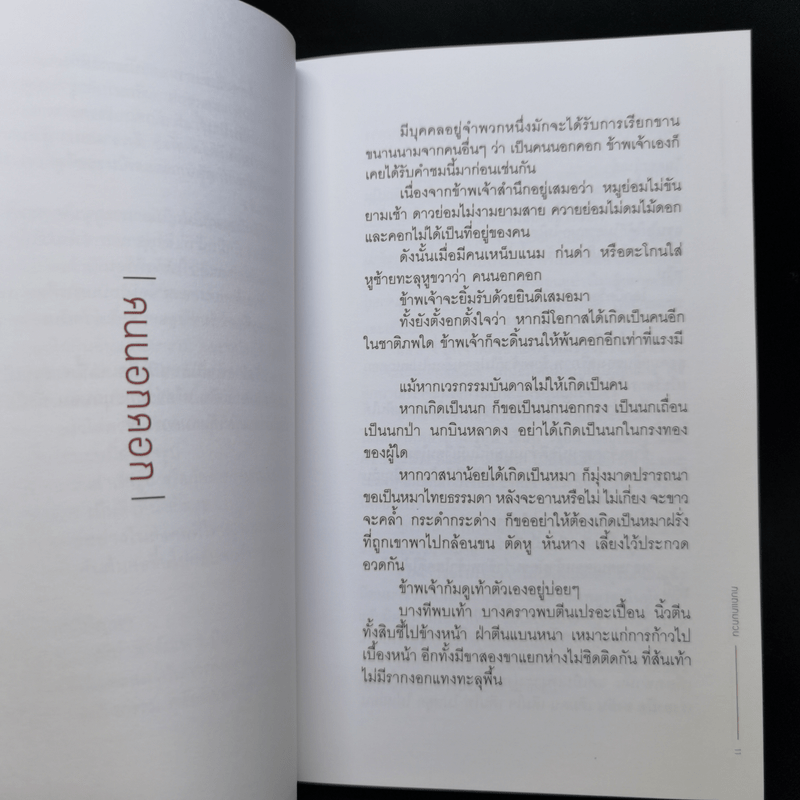 | คนนอกคอก |
มีบุคคลอยู่จำพวกหนึ่งมักจะได้รับการเรียกขาน
ขนานนามจากคนอื่นๆ ว่า เป็นคนนอกคอก ข้าพเจ้าเองก็
เคยได้รับคำชมนี้มาก่อนเช่นกัน
เนื่องจากข้าพเจ้าสำนึกอยู่เสมอว่า หมูย่อมไม่ขัน
ยามเช้า ดาวย่อมไม่งามยามสาย ควายย่อมไม่ดมไม้ดอก
และคอกไม่ได้เป็นที่อยู่ของคน
ดังนั้นเมื่อมีคนเหน็บแนม ก่นด่า หรือตะโกนใส่
หูซ้ายทะลุหูขวาว่า คนนอกคอก
ข้าพเจ้าจะยิ้มรับด้วยยินดีเสมอมา
ทั้งยังตั้งอกตั้งใจว่า หากมีโอกาสได้เกิดเป็นคนอีก
ในชาติภพใด ข้าพเจ้าก็จะดิ้นรนให้พ้นคอกอีกเท่าที่แรงมี
แม้หากเวรกรรมบันดาลไม่ให้เกิดเป็นคน
หากเกิดเป็นนก ก็ขอเป็นนกนอกกรง เป็นนกเถื่อน
เป็นนกป่า นกบินหลาดง อย่าได้เกิดเป็นนกในกรงทอง
ของผู้ใด
หากวาสนาน้อยได้เกิดเป็นหมา ก็มุ่งมาดปรารถนา
ขอเป็นหมาไทยธรรมดา หลังจะอานหรือไม่ ไม่เกี่ยง จะขาว
จะคล้ำ กระดำกระด่าง ก็ขออย่าให้ต้องเกิดเป็นหมาฝรั่ง
ที่ถูกเขาพาไปกล้อนขน ตัดหู หั่นหาง เลี้ยงไว้ประกวด
อวดกัน
ข้าพเจ้าก้มดูเท้าตัวเองอยู่บ่อยๆ
บางทีพบเท้า บางคราวพบตีนเปรอะเปื้อน นิ้วตีน
ทั้งสิบชี้ไปข้างหน้า ฝ่าตีนแบนหนา เหมาะแก่การก้าวไป
เบื้องหน้า อีกทั้งมีขาสองขาแยกห่างไม่ชิดติดกัน ที่ส้นเท้า
ไม่มีรากงอกแทงทะลุพื้น
11